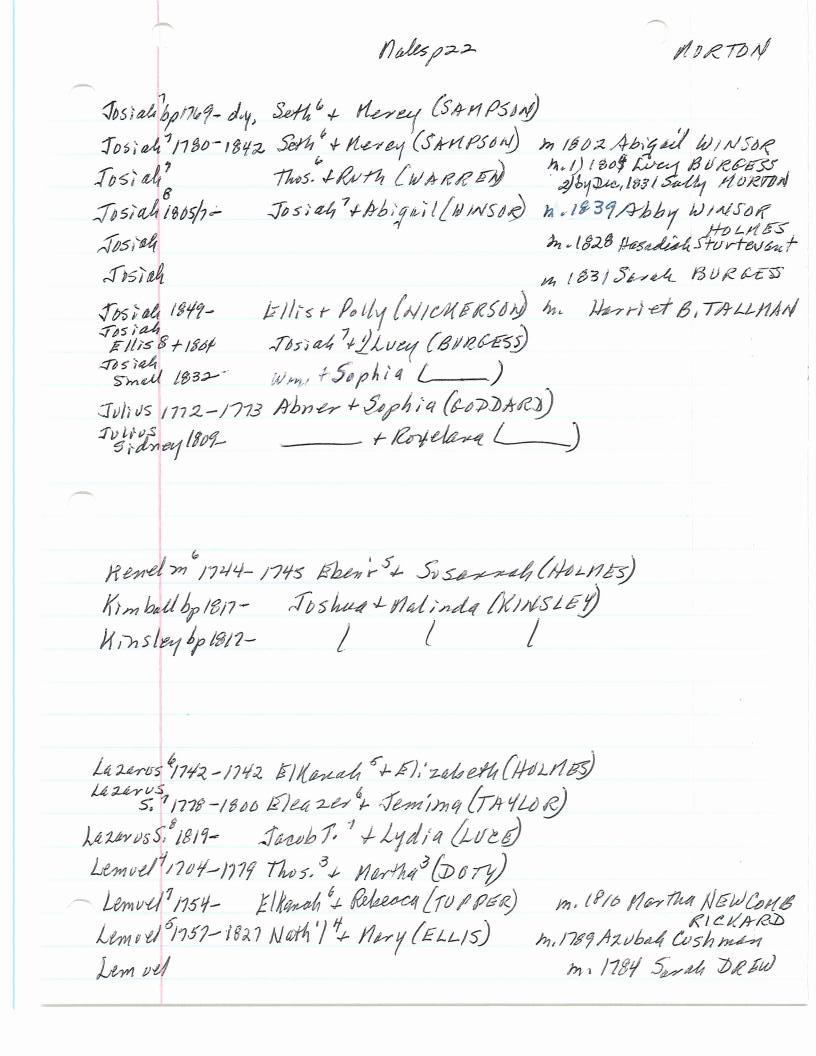 Males p22 MORTON
Josiah⁷ bp1769- dy, Seth⁶ + Mercy (SAMPSON)
Josiah⁷ 1780-1842 Seth⁶ + Mercy (SAMPSON) m 1802 Abigail WINSOR
Josiah⁷ Thos.⁶ + Ruth (WARREN) m. 1) 1808 Lucy BURGESS
2) by Dec, 1831 Sally MORTON
Josiah⁸ 1805/7- Josiah⁷ + Abigail (WINSOR) m. 1839 Abby WINSOR
HOLMES
Josiah m. 1828 Hasadiah Sturtevant
Josiah m 1831 Sarah BURGESS
Josiah 1849- Ellis + Polly (NICKERSON) m. Harriet B. TALLMAN
Josiah
Ellis 8 + 1804 Josiah⁷ + 1) Lucy (BURGESS)
Josiah
Small 1832- Wm. + Sophia (____)
Julius 1772-1773 Abner + Sophia (GODDARD)
Julius
Sidney 1809- ____ + Roxelana (____)
m⁶ 1744-1745 Eben'r⁵ + Susannah (HOLMES)
Kimball bp1817- Joshua + Malinda (KINSLEY)
Kinsley bp1817- / / /
Lazarus⁶ 1742-1742 Elkanah⁵ + Elizabeth (HOLMES)
Lazarus
S.⁷ 1778-1800 Eleazer⁶ + Jemima (TAYLOR)
Lazarus S.⁸ 1819- Jacob T.⁷ + Lydia (LUCE)
Lemuel⁴ 1704-1779 Thos.³ + Martha³ (DOTY)
Lemuel⁷ 1754- Elkanah⁶ + Rebecca (TUPPER) m. 1810 Martha NEWCOMB
RICKARD
Lemuel⁵ 1757-1827 Nath'l⁴ + Mary (ELLIS) m. 1789 Azubah Cushman
Lemuel m. 1784 Sarah DREW